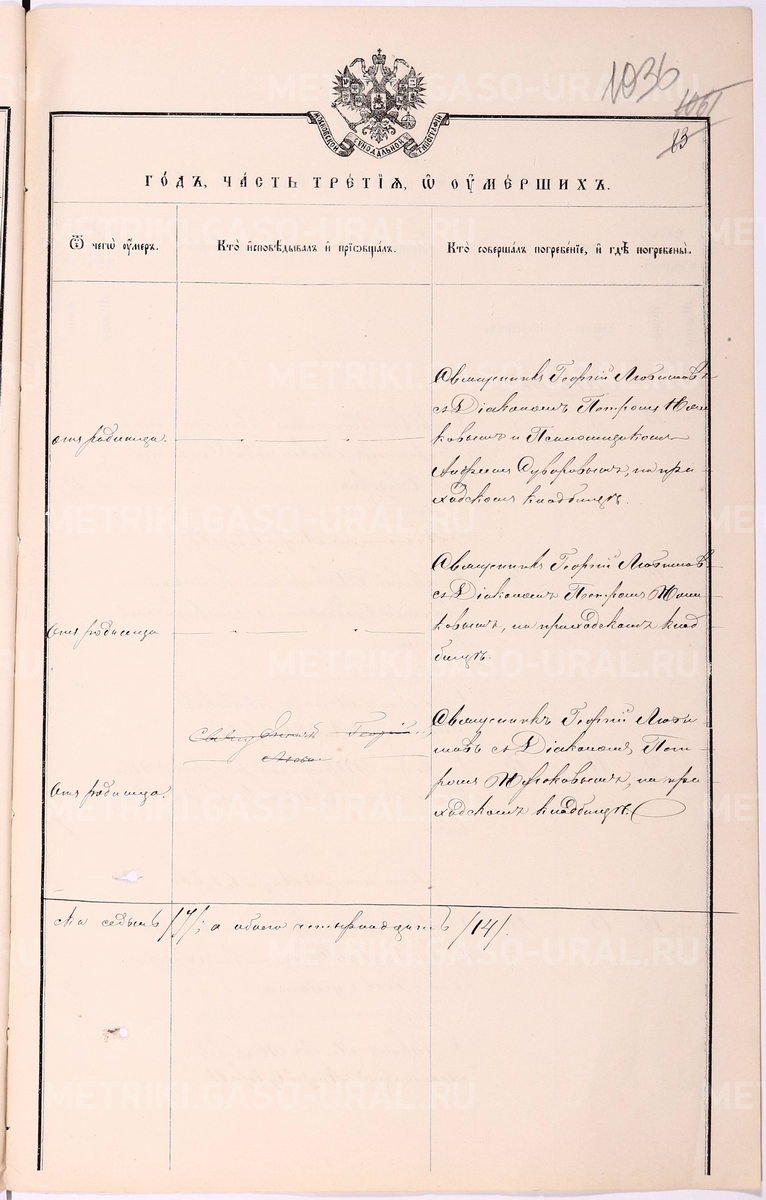 1036
1061
13
МОСКОВСКОЙ СѴНОДАЛЬНОЙ ТИПОГРАФІИ
ГО́ДЪ, ЧА́СТЬ ТРЕ́ТІѦ, Ѽ ОУМЕ́РШИХЪ.
Ѿ чегѡ̀ оу҆́меръ.
Кто̀ и҆сповѣ́дывалъ и҆ прїѡбща́лъ.
Кто̀ соверша́лъ погребе́нїе, и҆ гдѣ̀ погребены̀.
отъ родимца.
Священникъ Георгій Любимовъ
съ Діакономъ Петромъ
ковымъ и Псаломщикомъ
Андреемъ Суворовымъ, на при-
ходскомъ кладбищѣ.
Отъ родимца
Священникъ Георгій Любимовъ
съ Діакономъ Петромъ
ковымъ, на приходскомъ клад
бищѣ.
Отъ родимца.
Священникъ Георгій
Люби
Священникъ Георгій Люби-
мовъ съ Діакономъ Пет-
ромъ на при-
ходскомъ кладбищѣ.
ска седьмъ /7/; а обоего четырнадцать /14/.
METRIKI.GASO-URAL.RU